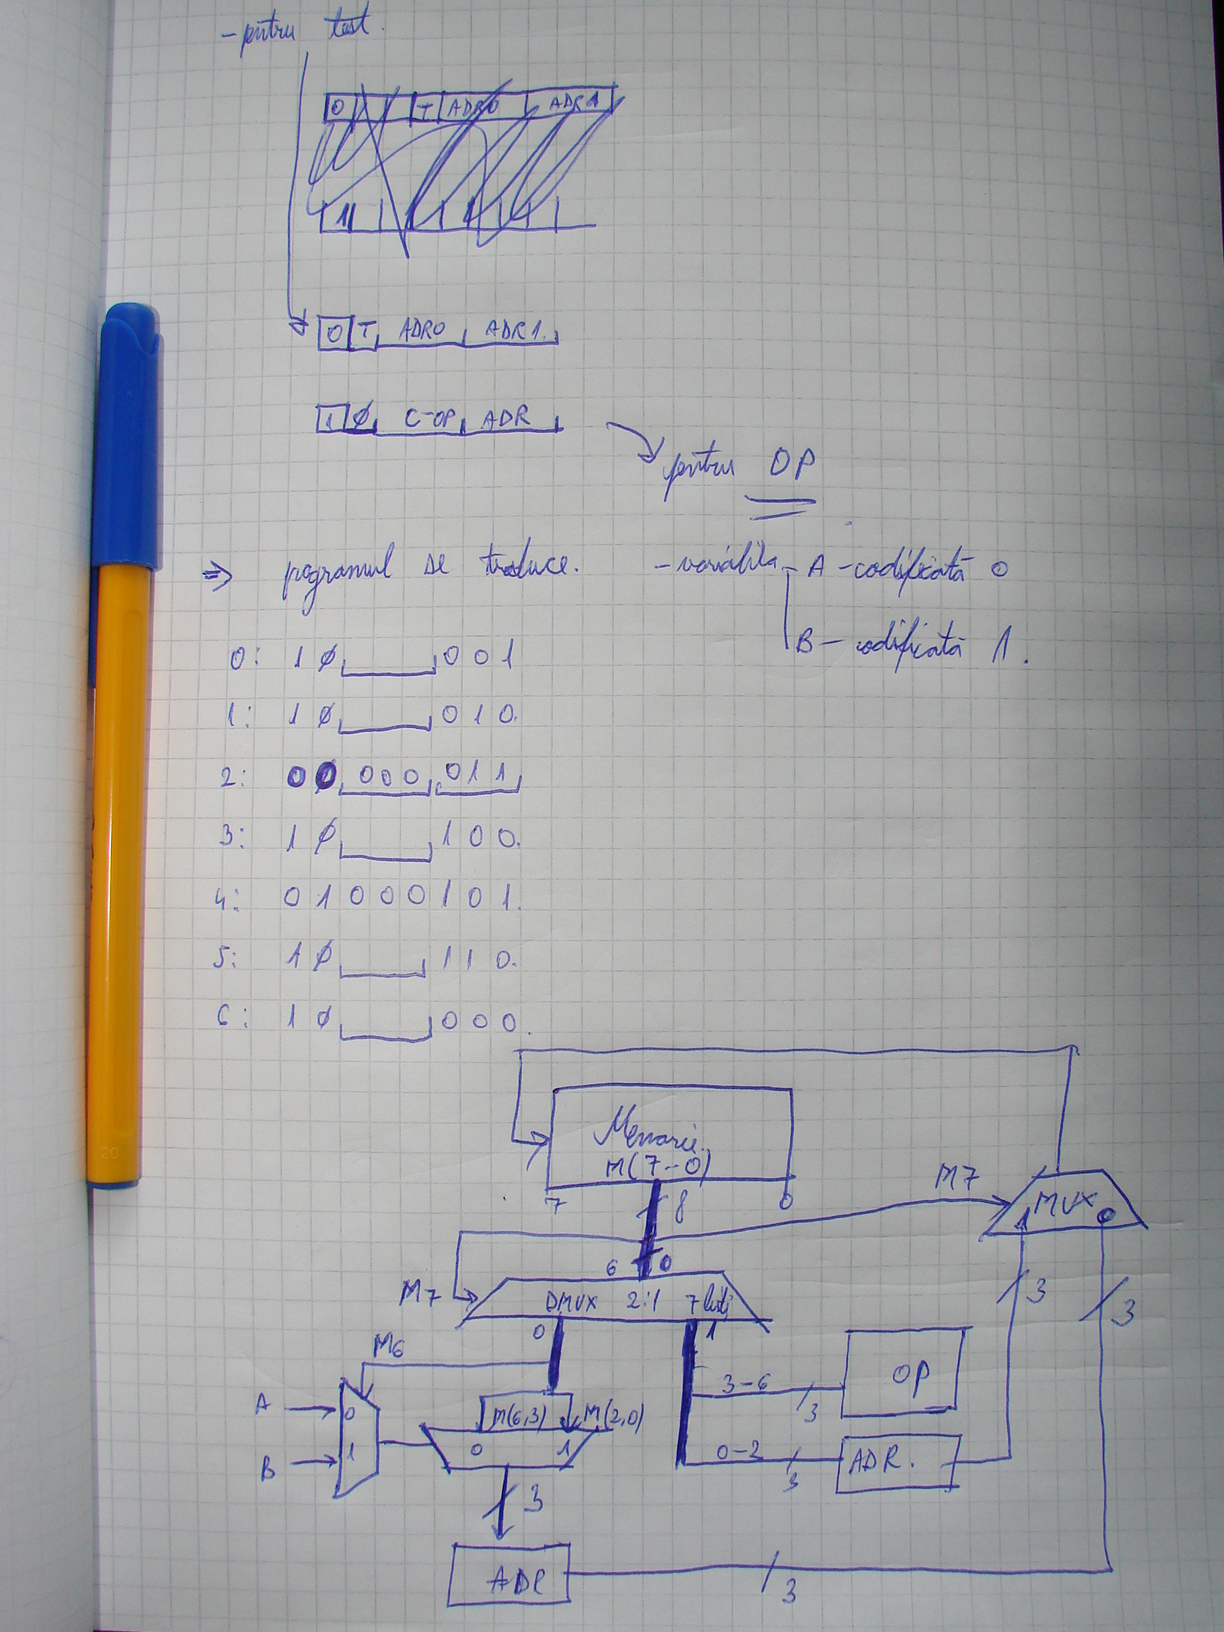 - pntru test.
0 T ADR0 ADR1
0 T ADR0 ADR1.
1 ø C-OP ADR
pntru OP
=> pogramul se traduce. - variabila - A - codificată 0
B - codificată 1.
0: 1 ø 0 0 1
1: 1 ø 0 1 0.
2: 0 0 0 0 0 0 1 1
3: 1 ø 1 0 0.
4: 0 1 0 0 0 1 0 1.
5: 1 ø 1 1 0.
6: 1 ø 0 0 0.
Memorie
M(7-0)
7 8 0
M7 MUX
1 0
6 0
M7 DMUX 2:1 7 biți
0 1
3 3
M6
A 0 M(6,3) M(2,0) 3-6 3 OP
B 1 0 1 0-2 3 ADR.
3
ADR 3
20